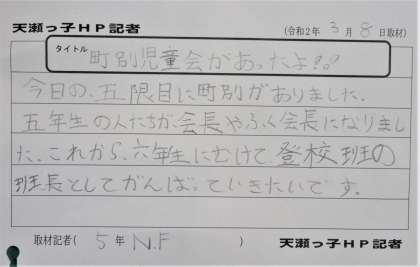 天瀬っ子HP記者
(令和2年 3月 8日取材)
タイトル
町別児童会があったよ!。?
今日の、五限目に町別がありました.
五年生の人たちが、会長やふく会長になりまし
た、これから、六年生にむけて、登校班の
班長としてがんばっていきたいです。
取材記者( 5年 N.F )
天瀬っ子HP記者